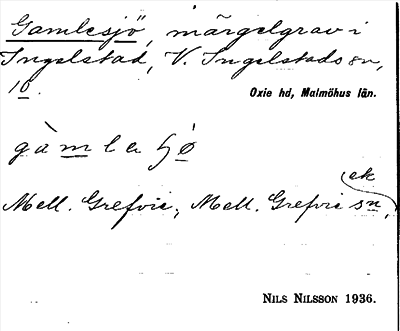 Gamlesjö, märgelgrav i
Ingelstad, V. Ingelstads sn,
10.
Oxie hd, Malmöhus län.
gàmla
ek
Mell. Grefvie, Mell. Grefvie sn,
NILS NILSSON 1936.